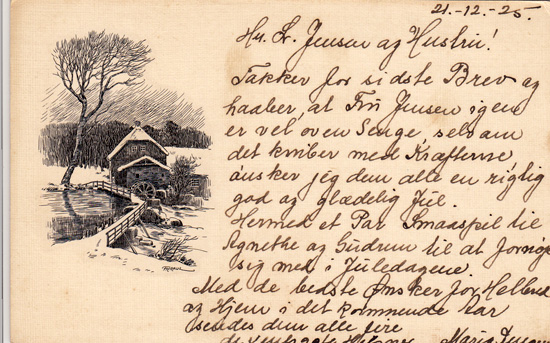 21.-12.-25.
Hr. Fr. Jensen og Hustru!
Takker for sidste Brev og
haaber, at Fru Jensen igen
er vel oven Senge, selv om
det kniber med Kræfterne,
ønsker jeg dem alle en rigtig
god og glædelig Jul.
Hermed et Par Smaaspil til
Agnethe og Gudrun til at fornøje
sig med i Juledagene.
Med de bedste Ønsker for Helbred
og Hjem i det kommende Aar
sendes dem alle fire
de Maria Jensen